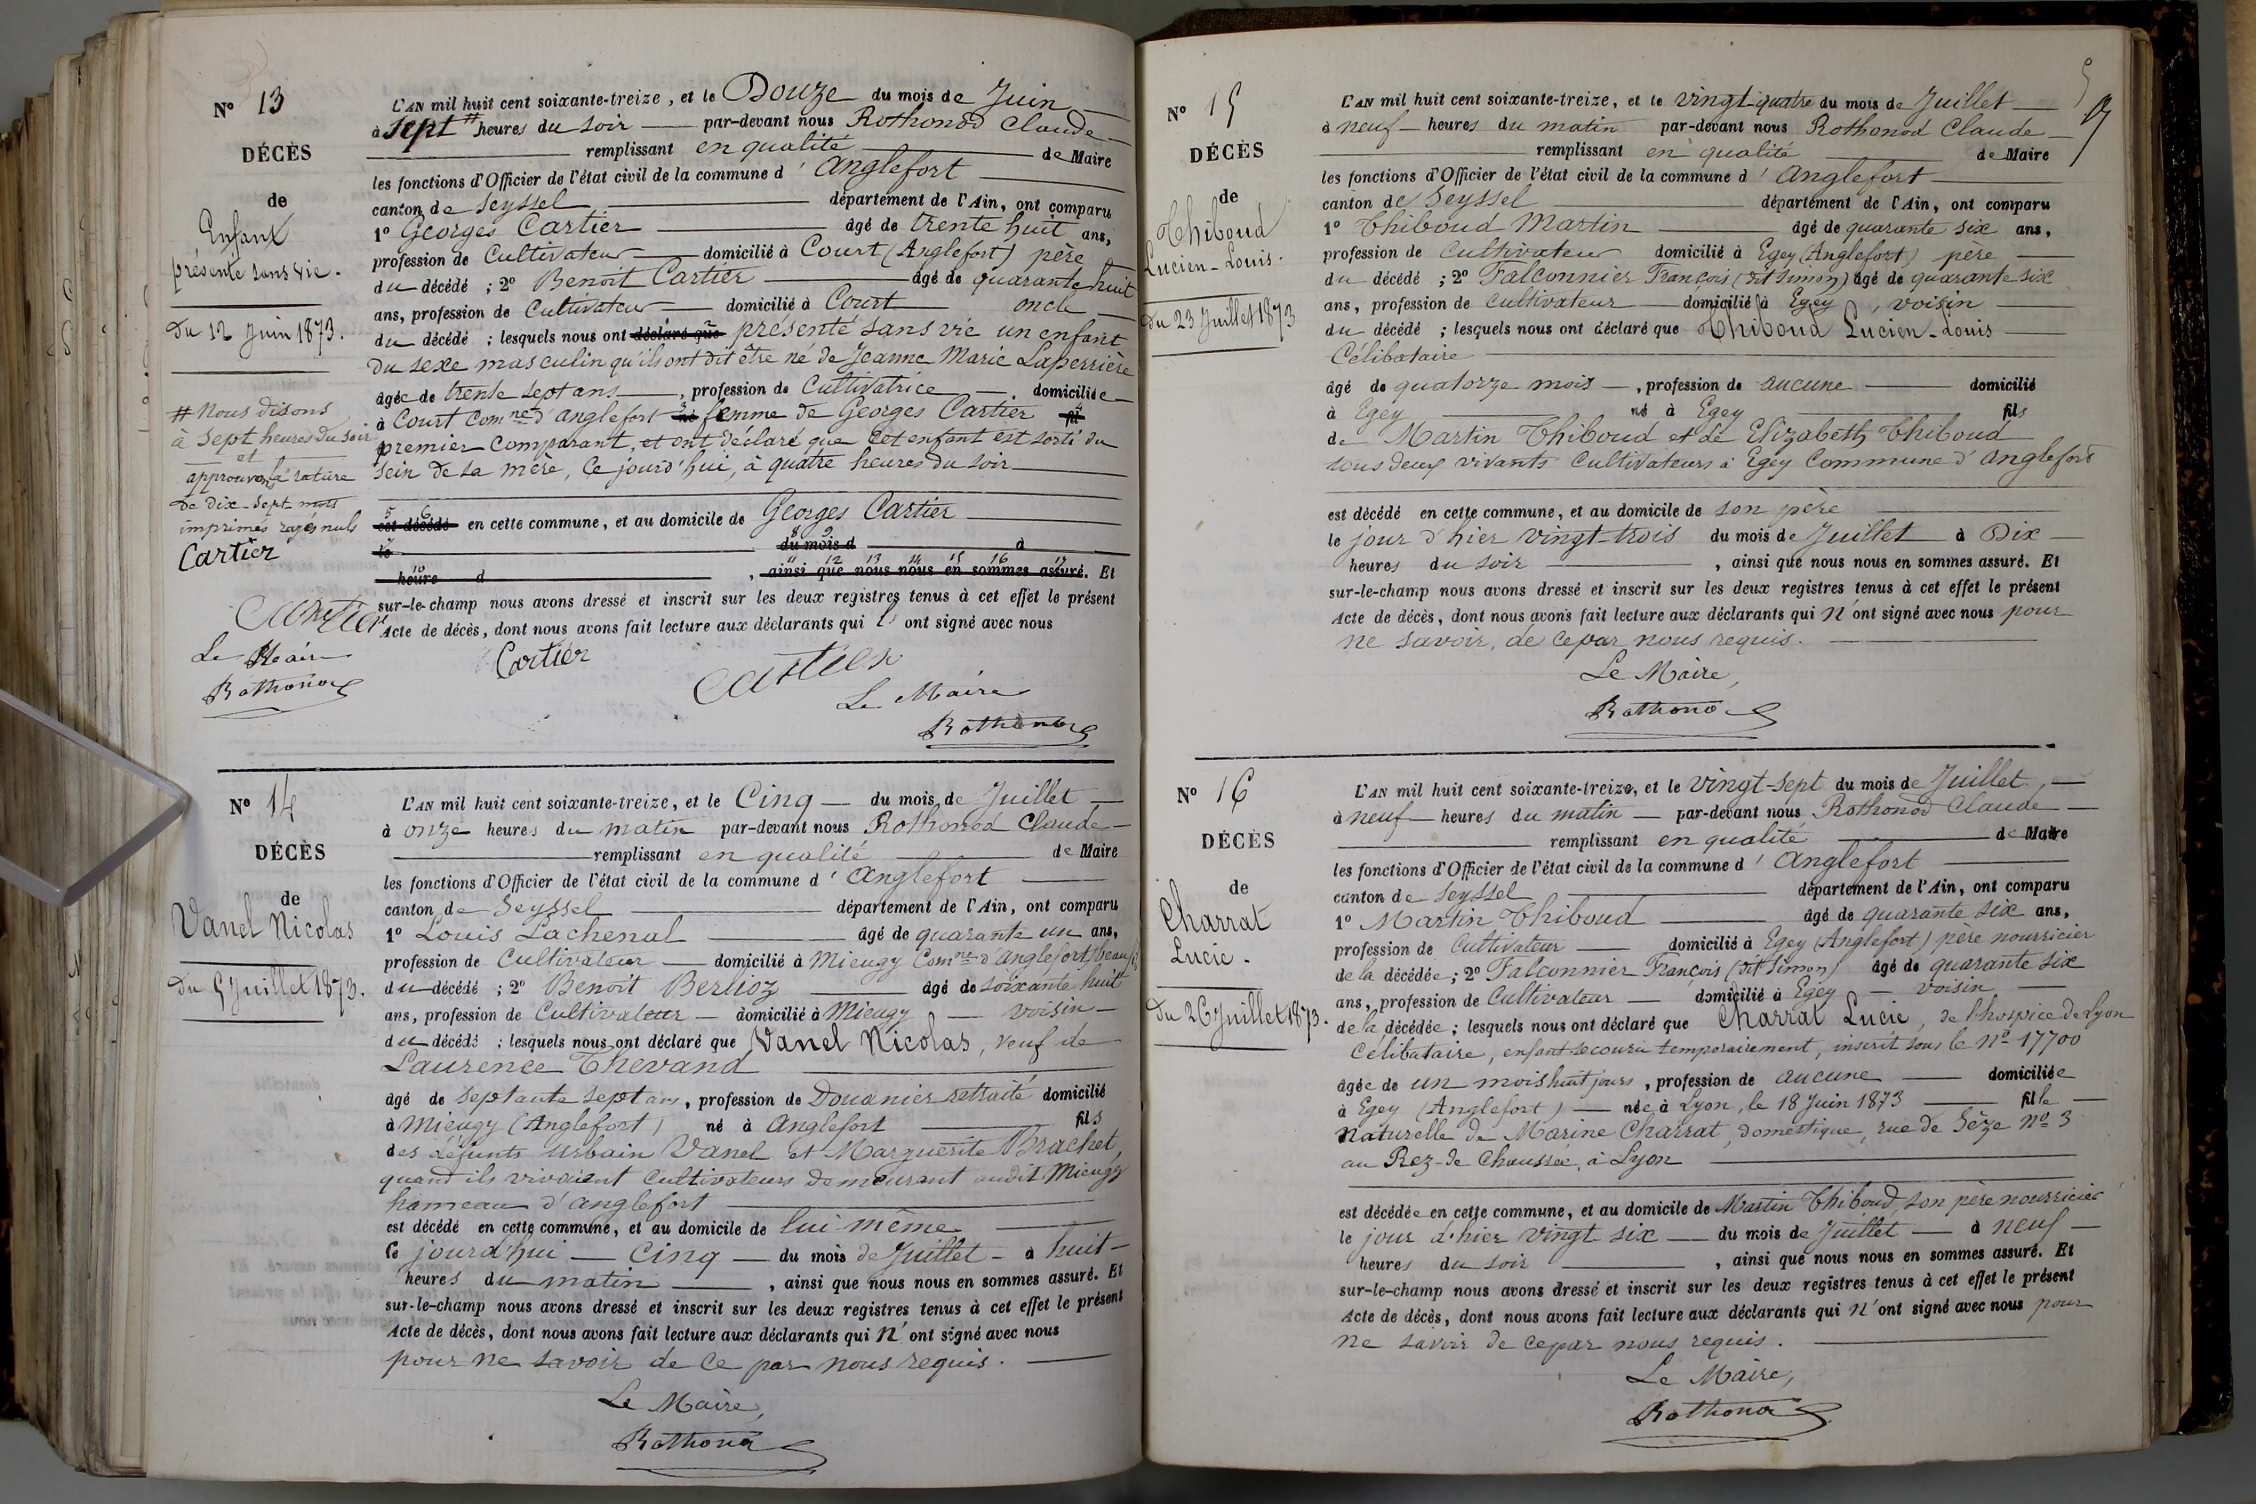 N° 13
DÉCÈS
de
Enfant
présenté sans vie.
Du 12 Juin 1873.
# Nous disons
à sept heures du soir
et
approuvons la rature
de dix-sept mots
imprimés rayés nuls
Cartier
Cartier
Le Maire
Rothonod
L'AN mil huit cent soixante-treize, et le Douze du mois de Juin
à Sept # heures du soir par-devant nous Rothonod Claude
remplissant en qualité de Maire
les fonctions d'Officier de l'état civil de la commune d' Anglefort
canton de Seyssel département de l'Ain, ont comparu
1° Georges Cartier âgé de trente huit ans,
profession de Cultivateur domicilié à Court (Anglefort) père
du décédé ; 2° Benoit Cartier âgé de quarante huit
ans, profession de Cultivateur domicilié à Court oncle
du décédé ; lesquels nous ont déclaré que présenté sans vie un enfant
du sexe masculin qu'ils ont dit être né de Jeanne Marie Laperrière
âgée de trente sept ans, profession de Cultivatrice domiciliée
à Court Comne d'anglefort né femme de Georges Cartier fil
premier Comparant, et ont déclaré que cet enfant est sorti du
sein de sa mère, ce jourd'hui, à quatre heures du soir
5 6
est décédé en cette commune, et au domicile de Georges Cartier
7 8 9
le du mois d à
10 11 12 13 14 15 16 17
heure d , ainsi que nous nous en sommes assuré. Et
sur-le-champ nous avons dressé et inscrit sur les deux registres tenus à cet effet le présent
Acte de décès, dont nous avons fait lecture aux déclarants qui ls ont signé avec nous
Cartier
Cartier
Le Maire
Rothonod
N° 14
DÉCÈS
de
Vanel Nicolas
Du 5 Juillet 1873.
L'AN mil huit cent soixante-treize, et le Cinq du mois de Juillet
à onze heures du matin par-devant nous Rothonod Claude
remplissant en qualité de Maire
les fonctions d'Officier de l'état civil de la commune d' Anglefort
canton de Seyssel département de l'Ain, ont comparu
1° Louis Lachenal âgé de quarante un ans,
profession de Cultivateur domicilié à Mieugy Comne d'anglefort, beau fils
du décédé ; 2° Benoit Berlioz âgé de soixante huit
ans, profession de Cultivateur domicilié à Mieugy voisin
du décédé ; lesquels nous ont déclaré que Vanel Nicolas, veuf de
Laurence Thevand
âgé de septante sept ans, profession de Douanier retraité domicilié
à Mieugy (Anglefort) né à Anglefort fils
des défunts Urbain Vanel et Marguerite Brachet,
quand ils vivaient Cultivateurs demeurant audit Mieugy
hameau d'anglefort
est décédé en cette commune, et au domicile de lui même
ce jourd'hui Cinq du mois de Juillet à huit
heures du matin , ainsi que nous nous en sommes assuré. Et
sur-le-champ nous avons dressé et inscrit sur les deux registres tenus à cet effet le présent
Acte de décès, dont nous avons fait lecture aux déclarants qui n'ont signé avec nous
pour ne savoir de ce par nous requis.
Le Maire,
Rothonod
N° 15
DÉCÈS
de
Thiboud
Lucien-Louis.
Du 23 Juillet 1873
L'AN mil huit cent soixante-treize, et le vingt-quatre du mois de Juillet
à neuf heures du matin par-devant nous Rothonod Claude
remplissant en qualité de Maire
les fonctions d'Officier de l'état civil de la commune d' Anglefort
canton de Seyssel département de l'Ain, ont comparu
1° Thiboud Martin âgé de quarante six ans,
profession de Cultivateur domicilié à Egey (Anglefort) père
du décédé ; 2° Falconnier François (dit Simon) âgé de quarante six
ans, profession de cultivateur domicilié à Egey, voisin
du décédé ; lesquels nous ont déclaré que Thiboud Lucien-Louis
Célibataire
âgé de quatorze mois, profession de aucune domicilié
à Egey né à Egey fils
de Martin Thiboud et de Elizabeth Thiboud
tous deux vivants Cultivateurs à Egey Commune d'anglefort
est décédé en cette commune, et au domicile de son père
le jour d'hier vingt-trois du mois de Juillet à Dix
heures du soir , ainsi que nous nous en sommes assuré. Et
sur-le-champ nous avons dressé et inscrit sur les deux registres tenus à cet effet le présent
Acte de décès, dont nous avons fait lecture aux déclarants qui n'ont signé avec nous pour
ne savoir, de ce par nous requis.
Le Maire,
Rothonod
N° 16
DÉCÈS
de
Charrat
Lucie.
Du 26 Juillet 1873.
L'AN mil huit cent soixante-treize, et le vingt-sept du mois de Juillet
à neuf heures du matin par-devant nous Rothonod Claude
remplissant en qualité de Maire
les fonctions d'Officier de l'état civil de la commune d' Anglefort
canton de Seyssel département de l'Ain, ont comparu
1° Martin Thiboud âgé de quarante six ans,
profession de Cultivateur domicilié à Egey (Anglefort) père nourricier
de la décédée ; 2° Falconnier François (dit Simon) âgé de quarante six
ans, profession de Cultivateur domicilié à Egey voisin
de la décédée ; lesquels nous ont déclaré que Charrat Lucie, de l'hospice de Lyon
Célibataire, enfant secouru temporairement, inscrit sous le N° 17700
âgée de un mois huit jours, profession de aucune domiciliée
à Egey (Anglefort) née à Lyon, le 18 Juin 1873 fille
naturelle de Marine Charrat, domestique, rue de Sèze N° 3
au Rez-de Chaussée, à Lyon
est décédée en cette commune, et au domicile de Martin Thiboud, son père nourricier
le jour d'hier vingt six du mois de Juillet à neuf
heures du soir , ainsi que nous nous en sommes assuré. Et
sur-le-champ nous avons dressé et inscrit sur les deux registres tenus à cet effet le présent
Acte de décès, dont nous avons fait lecture aux déclarants qui n'ont signé avec nous pour
ne savoir de ce par nous requis.
Le Maire,
Rothonod